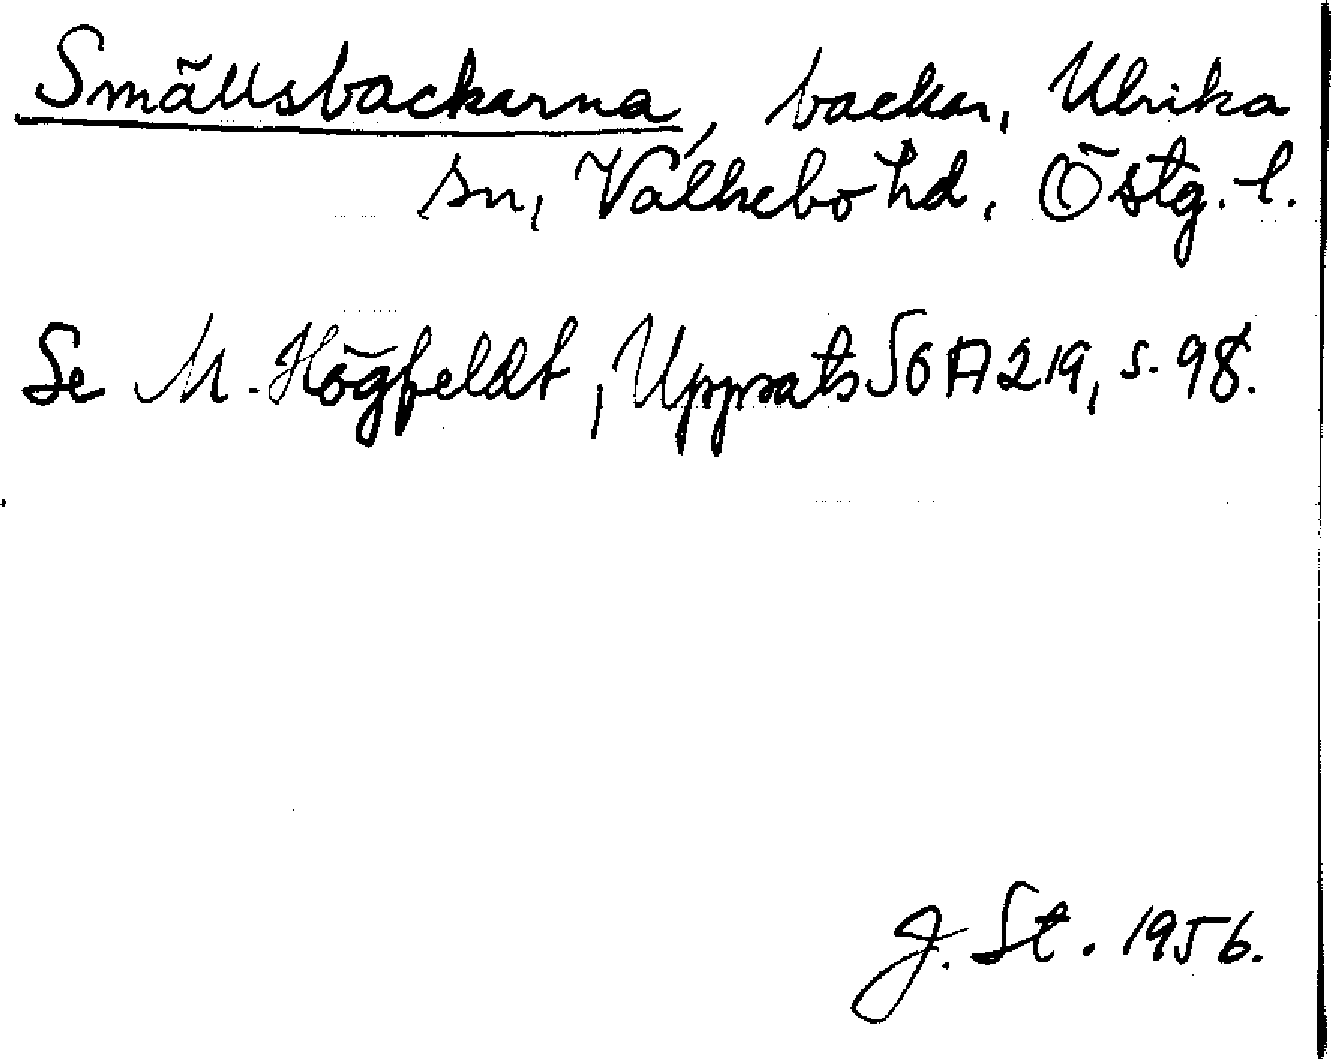 Smällsbackarna, backar, Ulrika
sn, Valkebo hd, Östg. l.
Se M. Högfeldt, Uppsats SOA 219, s. 98.
J. St. 1956.